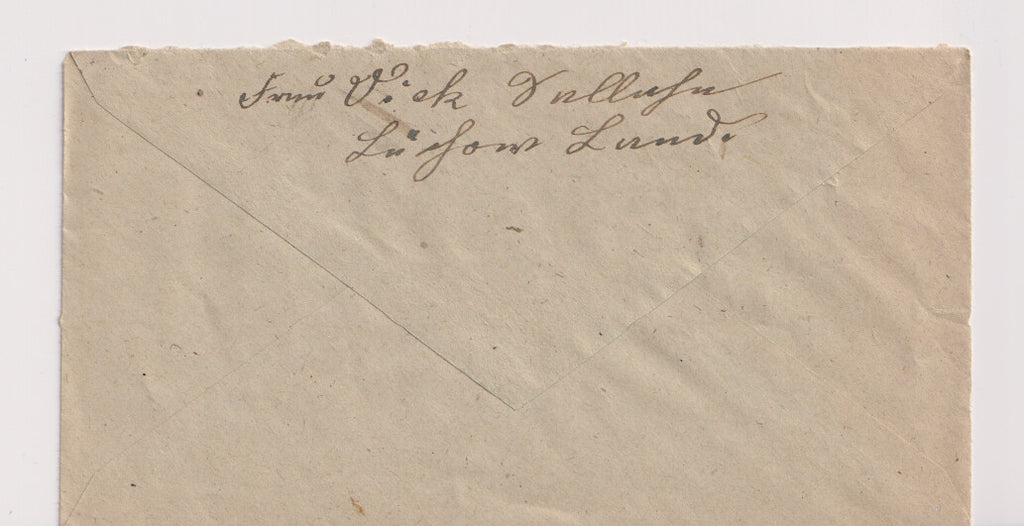 Frau Dick Sallahn
Lüchow Land.